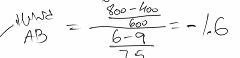 AB = \frac{\frac{800-400}{600}}{\frac{6-9}{7.5}} = -1.6